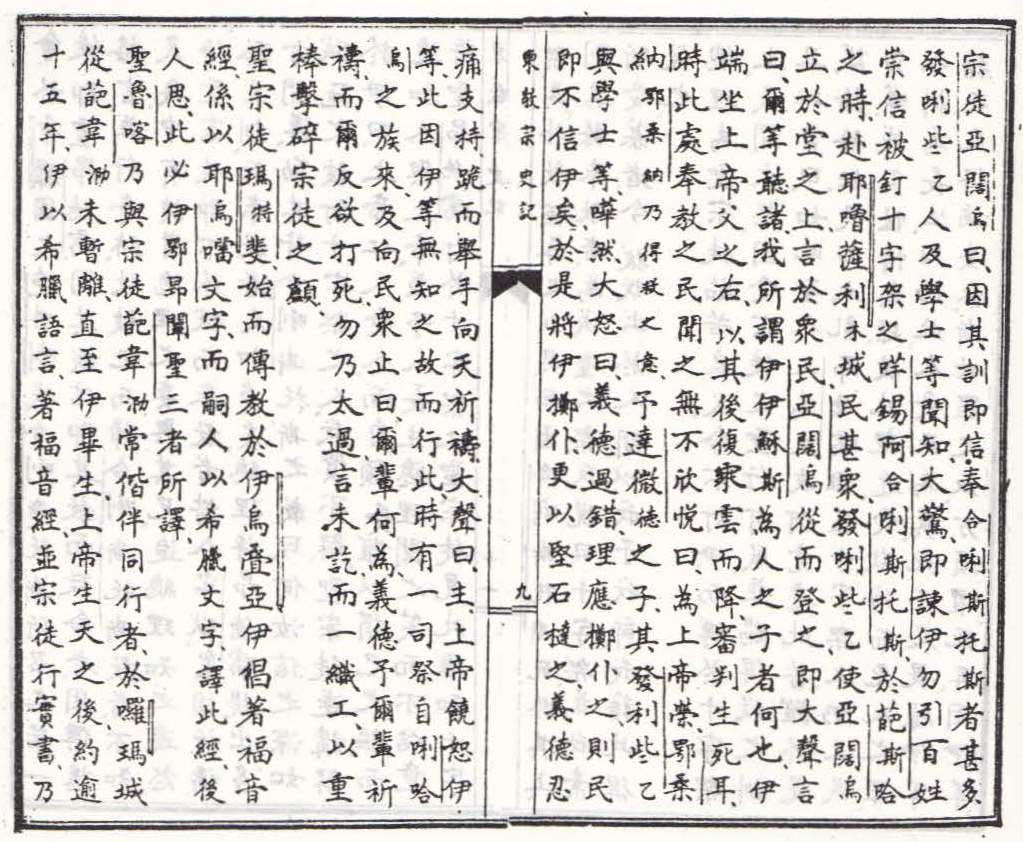 宗徒亞闊烏曰、因其訓即信奉合唎斯托斯者甚多
發唎些乙人及學士等聞知大驚即諫伊勿引百姓
崇信被釘十字架之咩錫阿合唎斯托斯、於葩斯哈
之時、赴耶嚕薩利木城、民甚衆、發唎些乙使亞闊烏
立於堂之上言於衆民、亞闊烏從而登之即大聲言
曰、爾等聽諸我所謂伊伊穌斯為人之子者何也伊
端坐上帝父之右、以其後復乘雲而降、審判生死耳、
時此處奉教之民聞之無不欣悅曰、為上帝榮、鄂桑
納鄂桑納乃得拯之意、予達微德之子、其發利些乙
與學士等、嘩然大怒曰、義德過錯理應擲仆之則民
即不信伊矣、於是將伊擲仆、更以堅石撻之、義德忍
東教宗史記
九
痛支持跪而舉手向天祈禱、大聲曰、主上帝饒恕伊
等、此因伊等無知之故而行此、時有一司祭自唎哈
烏之族來、及向民衆止曰、爾輩何為、義德予爾輩祈
禱、而爾反欲打死、勿乃太過、言未訖而一織工、以重
棒擊碎宗徒之顱、
聖宗徒瑪特斐、始而傳教於伊烏疊亞伊倡著福音
經、係以耶烏噹文字、而嗣人以希臘文字譯此經、後
人思、此必伊鄂昂聞聖三者所譯、
聖魯喀乃與宗徒葩韋泐常偕伴同行者、於囉瑪城
從葩韋泐未暫離、直至伊畢生、上帝生天之後、約逾
十五年、伊以希臘語言、著福音經、並宗徒行實書、乃